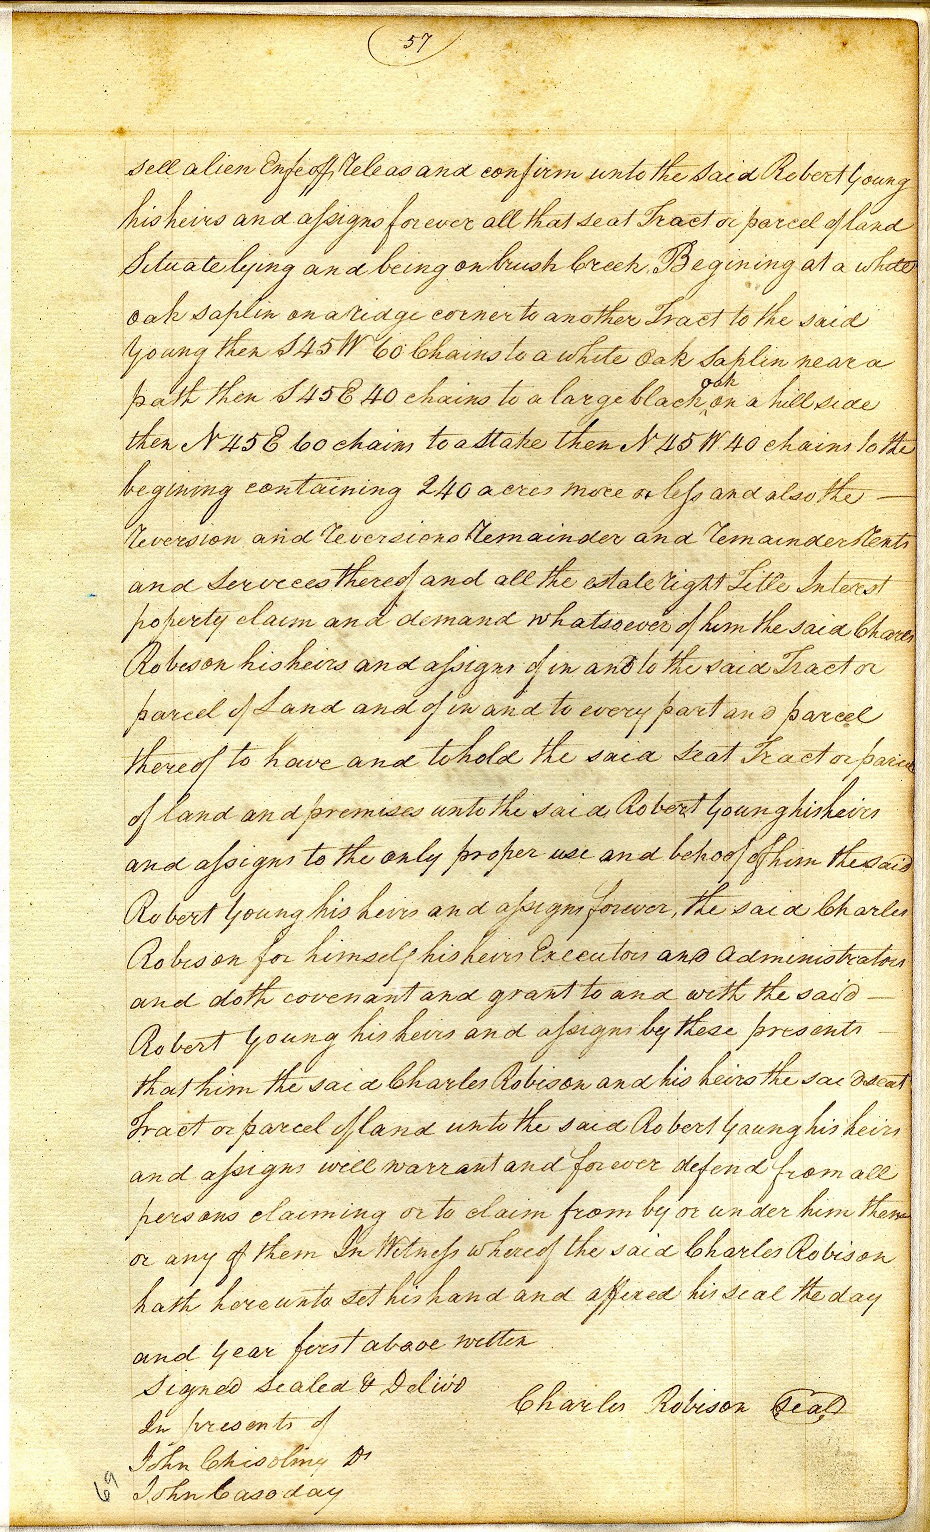 57
sell alien Enfeoff, Releas and confirm unto the said Robert Young
his heirs and assigns forever all that seat Tract or parcel of land
Situate lying and being on brush Creek. Begining at a white
oak saplin on a ridge corner to another Tract to the said
Young then S45W 60 Chains to a white oak saplin near a
path then S45E 40 chains to a large black oak on a hill side
then N45E 60 chains to a stake then N45W 40 chains to the
begining containing 240 acres more or less and also the —
Reversion and Reversions Remainder and Remainder Rents
and Services thereof and all the estate right Title Interst
poperty claim and demand whatsoever of him the said Charles
Robison his heirs and assigns of in and to the said Tract or
parcel of Land and of in and to every part and parcel
thereof to have and to hold the said seat Tract or parcel
of land and premises unto the said Robert Young his heirs
and assigns to the only proper use and behoof of him the said
Robert Young his heirs and assigns forever, the said Charles
Robison for himself his heirs Executors and administrators
and doth covenant and grant to and with the said —
Robert Young his heirs and assigns by these presents —
that him the said Charles Robison and his heirs the said seat
Tract or parcel of land unto the said Robert Young his heirs
and assigns will warrant and forever defend from all
persons claiming or to claim from by or under him them
or any of them In Witness whereof the said Charles Robison
hath hereunto set his hand and affixed his seal the day
and year first above written
Signed Sealed & Delivd
Charles Robison Seal
In presents of
John Chisolm
John Casoday
69